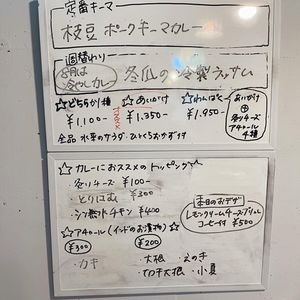 定番キーマ
枝豆 ポークキーマカレー
週替わり
8月は
冷やしカレー
冬瓜の冷製ラッサム
☆どちらか1種
¥1,100-
☆あいがけ
¥1,350-
☆わんぱく
¥1,950-
あいがけ
⊕
炙りチーズ
アチャール
4種
全品 水菜のサラダ・ひとくちおかず付
☆カレーにおススメのトッピング☆
・炙りチーズ ¥100-
・とりはむ ¥300
チキン ¥400
本日のおデザ
レモンクリームチーズブリュレ
コーヒー付 ¥500
☆アチャール(インドのお漬物)☆
¥300
¥200
・カキ
・大根 ・えのき
・切干大根 ・小夏